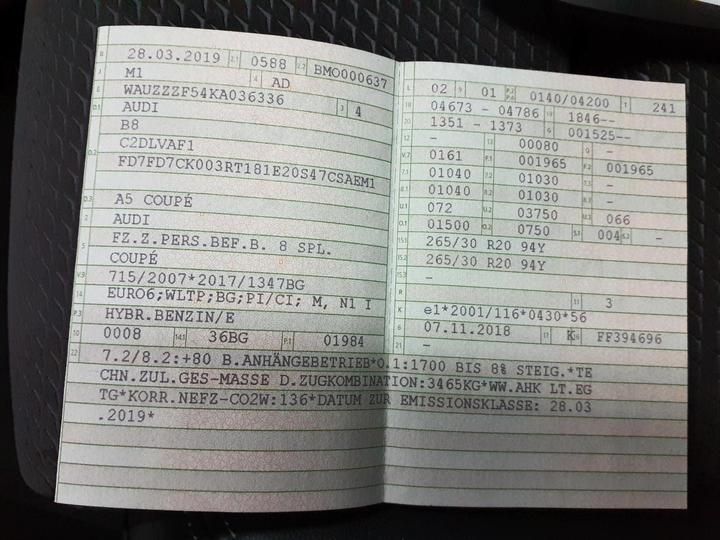 B 28.03.2019 2.1 0588 2.2 BMO000637
J M1 4 AD
E WAUZZZF54KA036336 3 4
D.1 AUDI
B8
D.2 C2DLVAF1
FD7FD7CK003RT181E20S47CSAEM1
D.3 A5 COUPÉ
2 AUDI
5 FZ.Z.PERS.BEF.B. 8 SPL.
COUPÉ
V.9 715/2007*2017/1347BG
14 EURO6;WLTP;BG;PI/CI; M, N1 I
P.3 HYBR.BENZIN/E
10 0008 14.1 36BG P.1 01984
L 02 9 01 P.2 P.4 0140/04200 T 241
18 04673 - 04786 19 1846--
20 1351 - 1373 G 001525--
12 - 13 00080 Q -
V.7 0161 F.1 001965 F.2 001965
7.1 01040 7.2 01030 7.3 -
8.1 01040 8.2 01030 8.3 -
U.1 072 U.2 03750 U.3 066
O.1 01500 O.2 0750 S.1 004 S.2 -
15.1 265/30 R20 94Y
15.2 265/30 R20 94Y
15.3 -
R 11 3
K e1*2001/116*0430*56
6 07.11.2018 17 K 16 FF394696
21 -
22 7.2/8.2:+80 B.ANHÄNGEBETRIEB*O.1:1700 BIS 8% STEIG.*TE
CHN.ZUL.GES-MASSE D.ZUGKOMBINATION:3465KG*WW.AHK LT.EG
TG*KORR.NEFZ-CO2W:136*DATUM ZUR EMISSIONSKLASSE: 28.03
.2019*